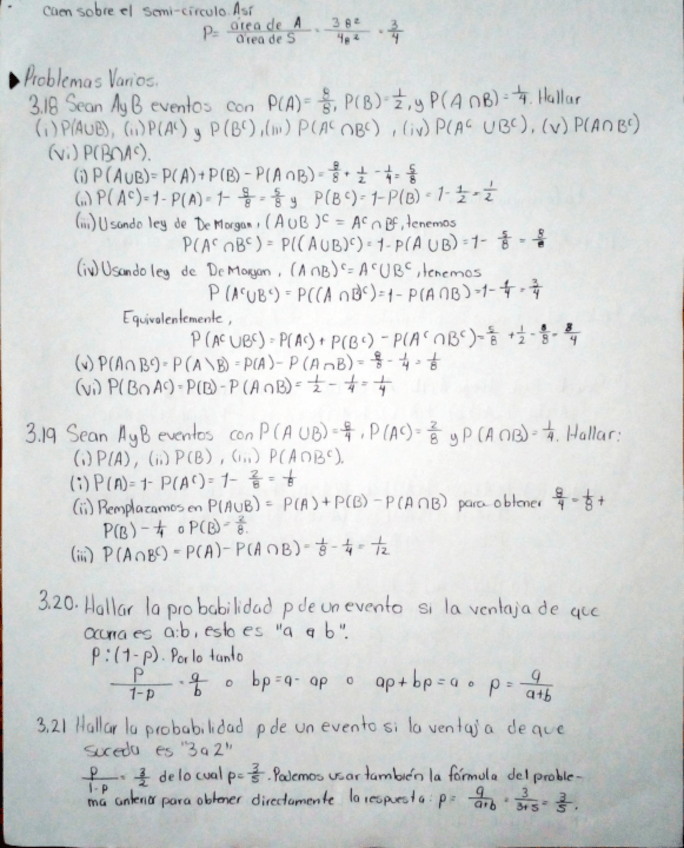 Caen sobre el semi-círculo. Así
P= área de A / área de S = 3θ² / 4θ² = 3/4
▶Problemas Varios.
3.18 Sean A y B eventos con P(A)= 8/8, P(B)= 1/2, y P(A∩B)= 1/4. Hallar
(i) P(A∪B), (ii) P(Aᶜ) y P(Bᶜ), (iii) P(Aᶜ∩Bᶜ), (iv) P(Aᶜ∪Bᶜ), (v) P(A∩Bᶜ)
(vi) P(B∩Aᶜ).
(i) P(A∪B)=P(A)+P(B)-P(A∩B)= 8/8 + 1/2 - 1/4 = 5/8
(ii) P(Aᶜ)=1-P(A)=1- 8/8 = 5/8 y P(Bᶜ)=1-P(B)=1- 1/2 = 1/2
(iii) Usando ley de De Morgan, (A∪B)ᶜ = Aᶜ∩Bᶜ, tenemos
P(Aᶜ∩Bᶜ) = P((A∪B)ᶜ)=1-P(A∪B)=1- 5/8 = 8/8
(iv) Usando ley de De Morgan, (A∩B)ᶜ=Aᶜ∪Bᶜ, tenemos
P(Aᶜ∪Bᶜ) = P((A∩B)ᶜ)=1-P(A∩B)=1- 1/4 = 3/4
Equivalentemente,
P(Aᶜ∪Bᶜ)=P(Aᶜ)+P(Bᶜ)-P(Aᶜ∩Bᶜ)= 5/8 + 1/2 - 8/8 = 3/4
(v) P(A∩Bᶜ)=P(A\B)=P(A)-P(A∩B)= 8/8 - 1/4 = 1/8
(vi) P(B∩Aᶜ)=P(B)-P(A∩B)= 1/2 - 1/4 = 1/4
3.19 Sean A y B eventos con P(A∪B)= 8/4, P(Aᶜ)= 2/8 y P(A∩B)= 1/4. Hallar:
(i) P(A), (ii) P(B), (iii) P(A∩Bᶜ).
(i) P(A)=1-P(Aᶜ)=1- 2/8 = 1/8
(ii) Remplazamos en P(A∪B) = P(A)+P(B)-P(A∩B) para obtener 8/4 = 1/8 +
P(B) - 1/4 o P(B)= 2/8.
(iii) P(A∩Bᶜ)=P(A)-P(A∩B)= 1/8 - 1/4 = 1/12
3.20. Hallar la probabilidad p de un evento si la ventaja de que
ocurra es a:b, esto es "a a b".
P:(1-P). Por lo tanto
P/1-P = a/b o bp=a-ap o ap+bp=a o p= a/a+b
3.21 Hallar la probabilidad p de un evento si la ventaja de que
suceda es "3 a 2"
P/1-P = 3/2 de lo cual p= 3/5. Podemos usar también la fórmula del proble-
ma anterior para obtener directamente la respuesta: p= a/a+b = 3/3+5 = 3/5.